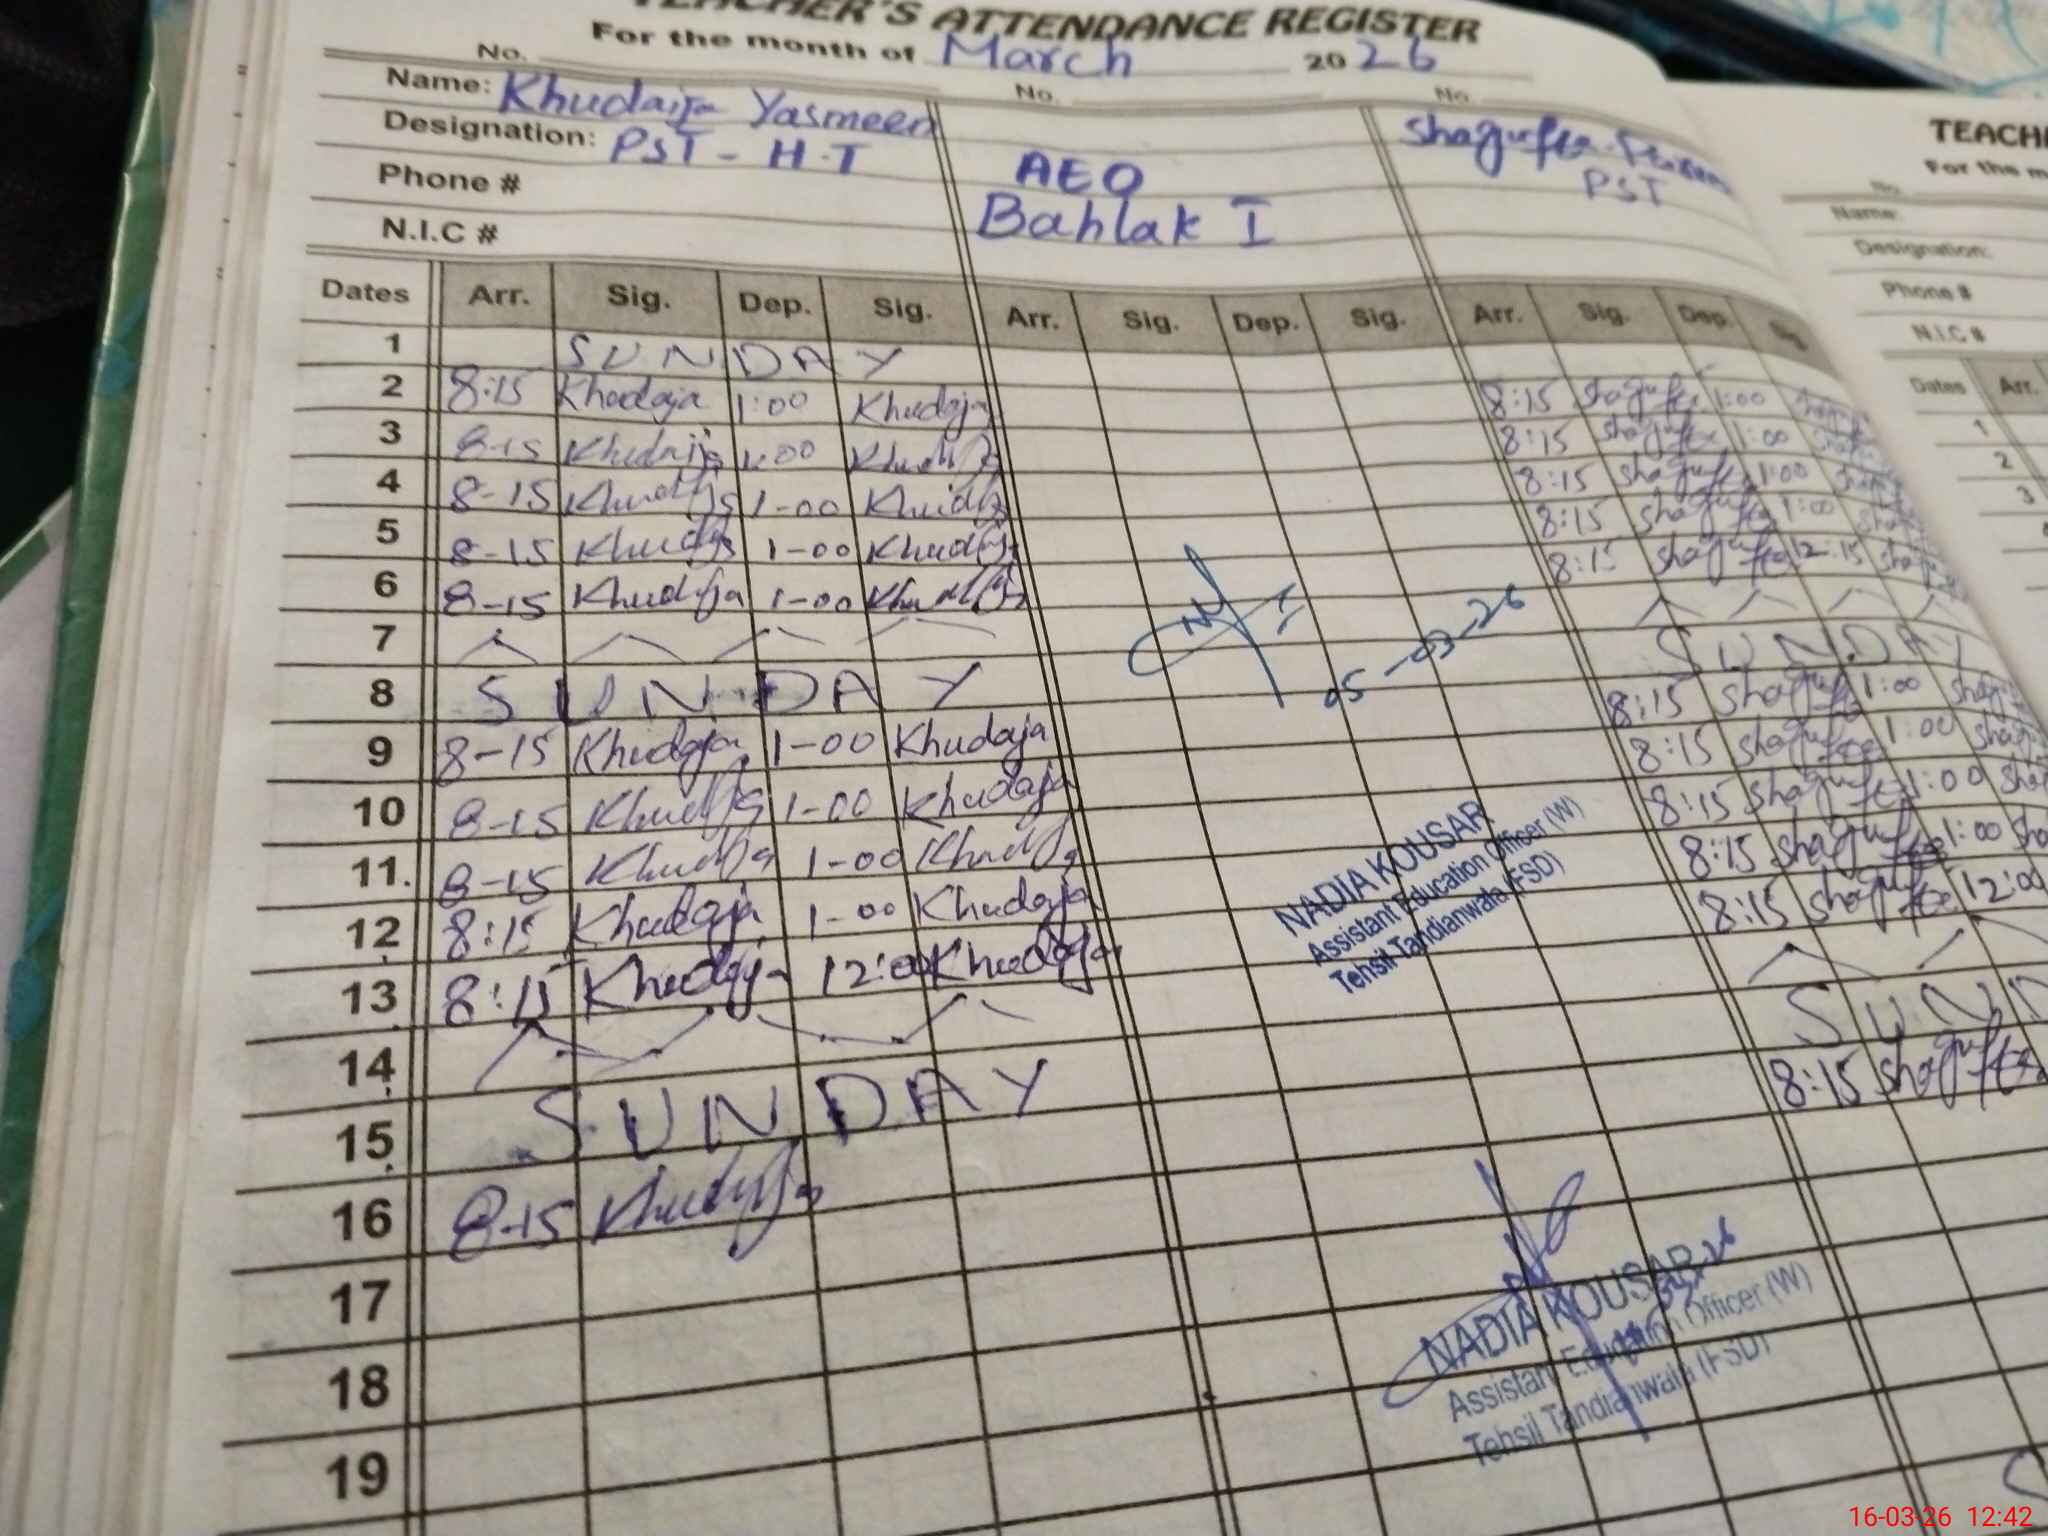 TEACHER'S ATTENDANCE REGISTER
For the month of March 2026
No. No. No.
Name: Khudaija Yasmeen Shagufta
Designation: PST - H.T AEO PST
Phone # Bahlak I
N.I.C #
Dates Arr. Sig. Dep. Sig. Arr. Sig. Dep. Sig. Arr. Sig. Dep. Sig
1 SUNDAY
2 8:15 Khudaja 1:00 Khudaja 8:15 Shagufta 1:00
3 8-15 Khudaija 1:00 8:15 Shagufta 1:00
4 8-15 1-00 8:15 Shagufta 1:00
5 8-15 1-00 8:15 Shagufta 1:00
6 8-15 Khudija 1-00 8:15 Shagufta 12:15
7
8 SUNDAY SUNDAY
9 8-15 Khudaja 1-00 Khudaja 8:15 Shagufta 1:00
10 8-15 1-00 Khudaja 8:15 Shagufta 1:00
11. 8-15 1-00 8:15 Shagufta 1:00
12 8:15 Khudaja 1-00 Khudaja 8:15 Shagufta 1:00
13 8:15 Khudaja 12:00 Khudaja 8:15 Shagufta 12:00
14
15 SUNDAY SUND
16 8-15 8:15 Shagufta
17
18
19
05-03-26
NADIA KOUSAR
Assistant Education Officer (W)
Tehsil Tandianwala (FSD)
NADIA KOUSAR
Assistant Education Officer (W)
Tehsil Tandianwala (FSD)
TEACHE
For the m
No.
Name:
Designation:
Phone #
N.I.C #
Dates Arr.
1
2
3
16-03-26 12:42